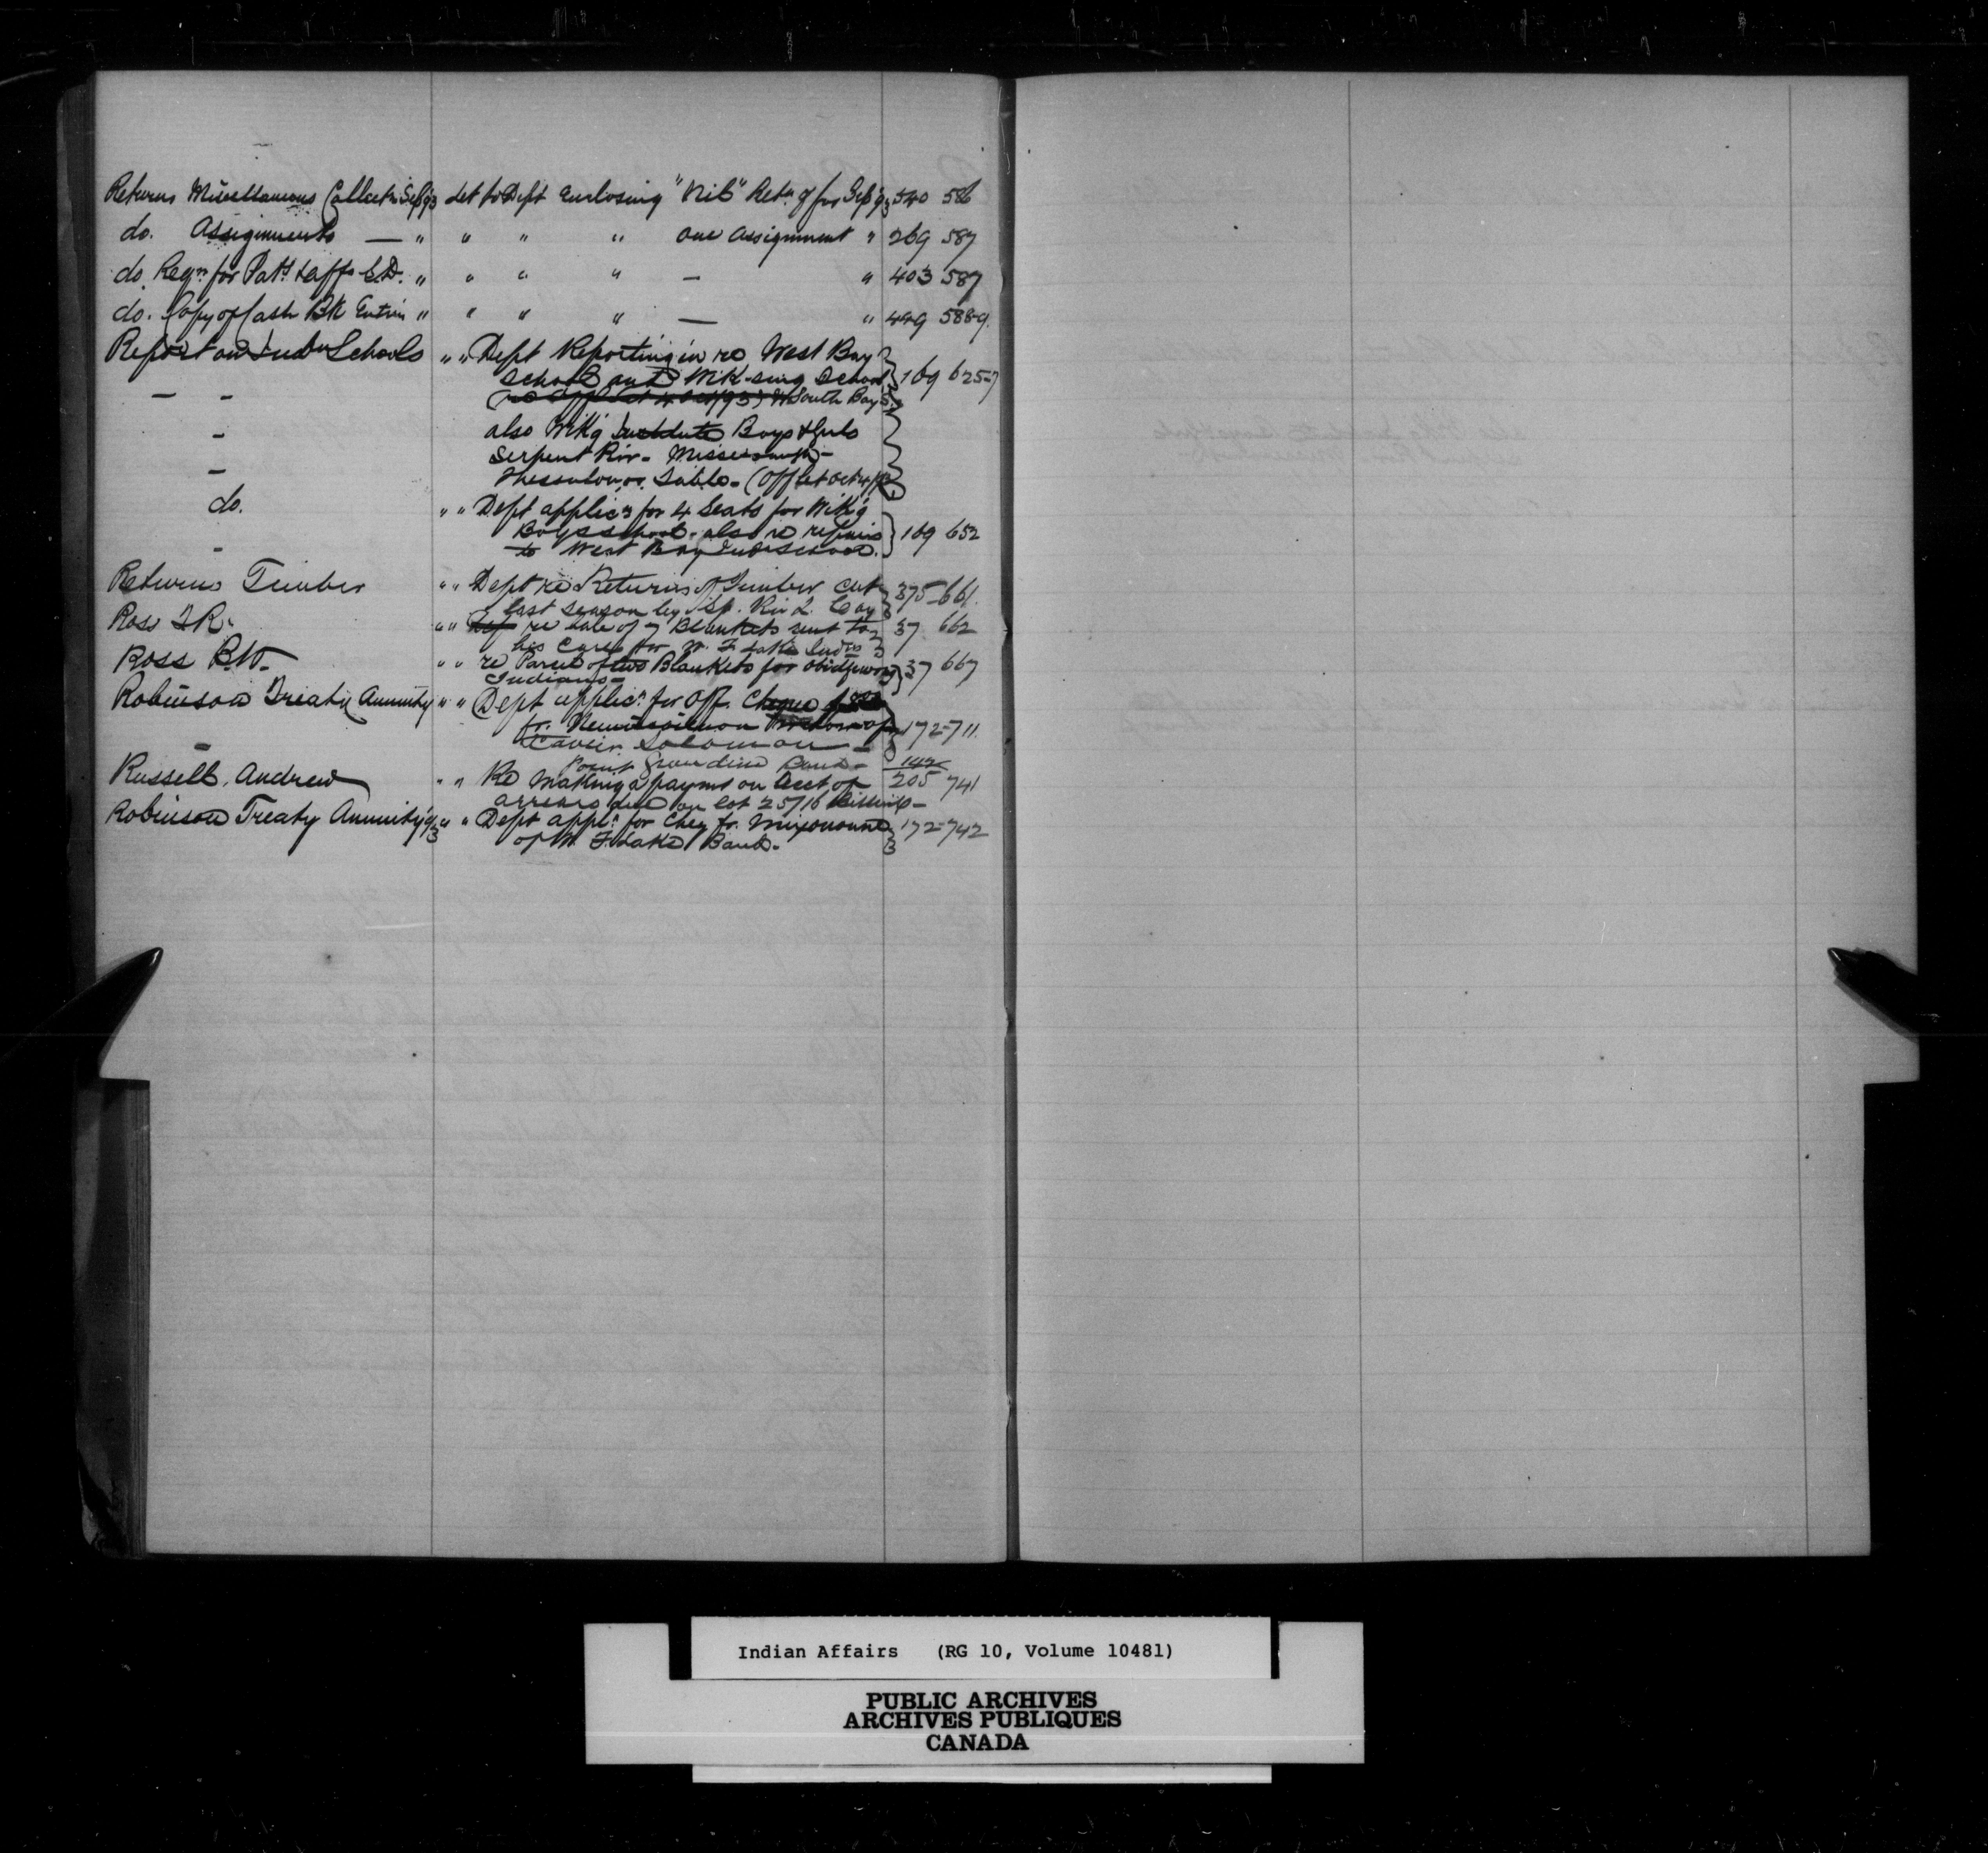 Returns Miscellaneous Collectn Sep 93 Let to Dept Enclosing "Nil" Retn of for Sep 93 340 586
do. Assignments — " " " " one assignment " 269 587
do. Reqn for Patt & affs L.D. " " " " — " 403 587
do. Copy of Cash Bk Entries " " " " — " 449 588-9.
Report on Indn Schools " " Dept Reporting in re West Bay
School and Wik-ing School 169 625-7
— — (re Off Let 4 Oct/93) & South Bay
also Wik'g Institute Boys & Girls
- Serpent Riv - Mississauga -
- Thessalon Sable - (Off Let Oct 4/93)
do. " " Dept applicn for 4 Seats for Wik'g
Boys School - also re repairs 169 652
- to West Bay Indn School.
Returns Timber " " Dept re Returns of Timber cut 375-661.
last season by Sp. Riv L. Coy
Ross " " re sale of 7 Blankets sent to 37 662
his Care for W. F. Lake Inds
Ross R.W. " " re Parcel of two Blankets for Obidgewong 37 667
Indians -
Robinson Treaty Annuity " " Dept applicn for Off. Cheque
fr. of 172-711.
- Solomon -
Point Grondine Band -
Russell, Andrew " " Re making a paymt on Acct of 205 741
arrears due on lot 25/16 Billings -
Robinson Treaty Annuity 93 " " Dept appln for Cheq fr. 172-742
of W. F. Lake Band.
Indian Affairs (RG 10, Volume 10481)
PUBLIC ARCHIVES
ARCHIVES PUBLIQUES
CANADA